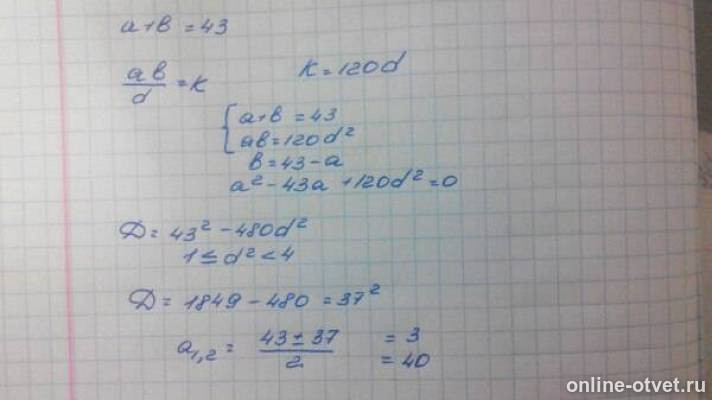 a+b = 43
ab/d = K
K = 120d
{ a+b = 43
ab = 120d²
b = 43-a
a² - 43a + 120d² = 0
D = 43² - 480d²
1 ≤ d² < 4
D = 1849 - 480 = 37²
a₁,₂ = (43 ± 37)/2 = 3
= 40
online-otvet.ru